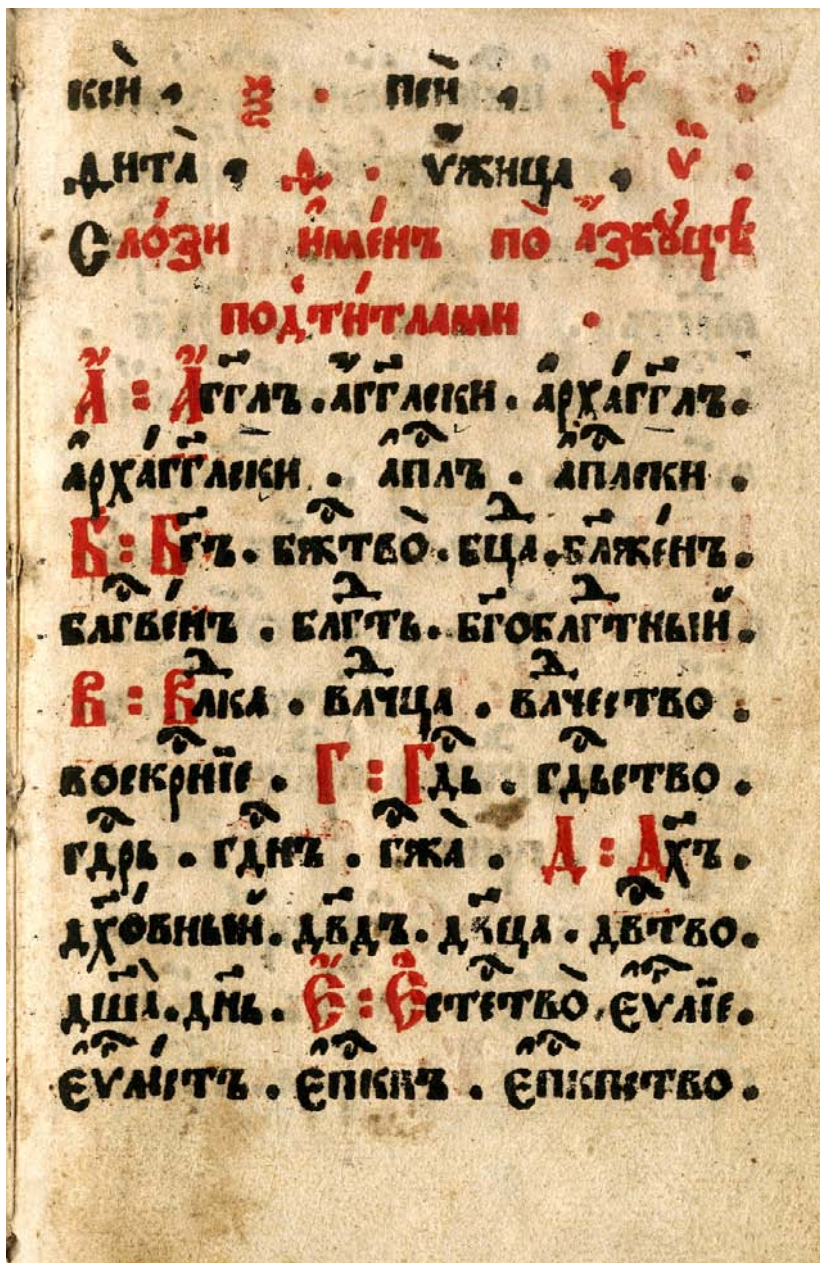 кси҆̀ . ѯ . пси҆̀ . ѱ .
ѳита̀ . ѳ . ѵ҆жица . ѵ҆ .
Сло́зи и҆ме́нъ по̀ а҆́збꙋцѣ
под̾ти́тлами .
А҆҃ : А҆́гг҃лъ . а҆́гг҃лски . а҆рха́гг҃лъ .
а҆рха́гг҃лски . а҆пⷭ҇лъ . а҆пⷭ҇лски .
Б : Бг҃ъ . бжⷭ҇тво̀ . бцⷣа . бл҃же́нъ .
блгⷭ҇ве́нъ . блгⷣть . бг҃облгⷣтный .
В : Влⷣка . влⷣчца . влⷣчество
воскрⷭ҇нїе . Г : Гдⷭ҇ь . гдⷭ҇ьство .
гдⷭ҇рь . гдⷭ҇нъ . гⷭ҇жа̀ . Д : Дх҃ъ .
дх҃о́вный . дв҃дъ . дв҃ца . двⷭ҇тво .
дш҃а̀ . дн҃ь . Е҆ : Е҆стⷭ҇ство̀ . є҆ѵⷢ҇лїе .
є҆ѵⷢ҇лі́стъ . є҆пⷭ҇кпъ . є҆пⷭ҇кпство .